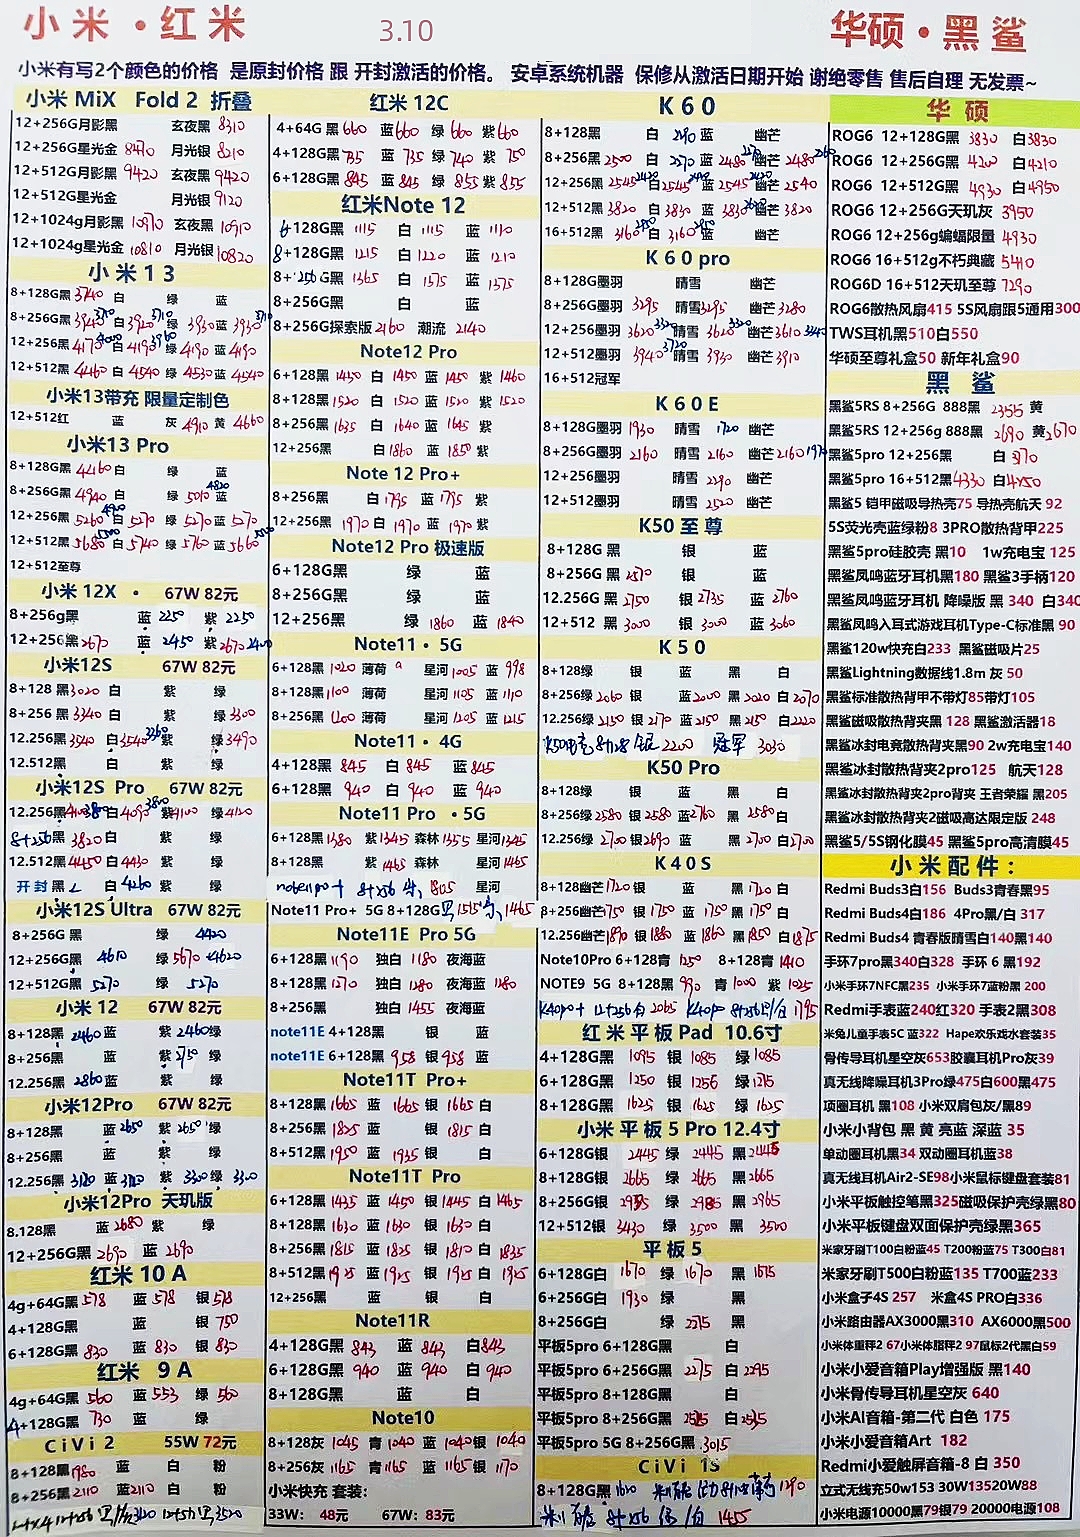 小米·红米
3.10
华硕·黑鲨
小米有写2个颜色的价格 是原封价格 跟 开封激活的价格。 安卓系统机器 保修从激活日期开始 谢绝零售 售后自理 无发票~
小米 MiX Fold 2 折叠
12+256G月影黑 玄夜黑 8310
12+256G星光金 8470 月光银 8210
12+512G月影黑 9420 玄夜黑 9420
12+512G星光金 月光银 9120
12+1024g月影黑 10970 玄夜黑 10910
12+1024g星光金 10810 月光银 10820
小米13
8+128G黑 3740 白 绿 蓝
8+256G黑 3940 白 3920 绿 3930 蓝 3930
12+256黑 4170 白 4190 绿 4190 蓝 4190
12+512黑 4460 白 4540 绿 4530 蓝 4540
小米13带充 限量定制色
12+512红 蓝 灰 4910 黄 4660
小米13 Pro
8+128G黑 4460 白 绿 蓝
8+256G黑 4940 白 绿 5010 蓝 4820
12+256黑 5260 白 5270 绿 5270 蓝 5270
12+512黑 5680 白 5740 绿 5760 蓝 5660
12+512至尊
小米 12X · 67W 82元
8+256g黑 蓝 2250 紫 2250
12+256G黑 2670 蓝 2450 紫 2670 2400
小米12S 67W 82元
8+128 黑 3020 白 紫 绿
8+256 黑 3340 白 紫 绿 3300
12.256黑 3540 白 3540 3360 紫 绿 3490
12.512黑 白 紫 绿
小米12S Pro 67W 82元
12.256黑 白 4090 3800 紫 4100 绿 4120
8+256黑 3820 白 紫 绿
12.512黑 4450 白 4430 紫 绿
开封 黑 白 4260 紫 绿
小米12S Ultra 67W 82元
8+256G 黑 绿 4420
12+256G黑 4610 绿 5670 4620
12+512G黑 5270 绿 5270
小米 12 67W 82元
8+128黑 2460 蓝 紫 2460 绿
8+256黑 蓝 紫 2750 绿
12.256黑 2860 蓝 紫 绿
小米12Pro 67W 82元
8+128黑 蓝 2650 紫 2650 绿
8+256黑 蓝 紫 绿
12.256黑 3120 蓝 3120 紫 3300 绿 3300
小米12Pro 天玑版
8.128黑 蓝 2680 紫 绿
12+256G黑 2690 蓝 2690
红米 10 A
4g+64G黑 578 蓝 578 银 578
4+128G黑 银 750
6+128G黑 830 蓝 830 银 830
红米 9 A
4g+64G黑 560 蓝 553 绿 560
4+128G黑 730 蓝 绿
CiVi 2 55W 72元
8+128黑 1980 蓝 白 粉
8+256黑 2110 蓝 2110 白 粉
红米 12C
4+64G 黑 660 蓝 660 绿 660 紫 660
4+128G黑 735 蓝 735 绿 740 紫 750
6+128G黑 845 蓝 845 绿 855 紫 855
红米Note 12
6+128G黑 1115 白 1115 蓝 1110
8+128G黑 1215 白 1220 蓝 1210
8+256G黑 1365 白 1375 蓝 1375
8+256G黑 白 蓝
8+256G探索版 2160 潮流 2140
Note12 Pro
6+128黑 1450 白 1450 蓝 1450 紫 1460
8+128黑 1520 白 1520 蓝 1520 紫 1520
8+256黑 1635 白 1640 蓝 1645 紫
12+256黑 白 1860 蓝 1850 紫
Note 12 Pro+
8+256黑 白 1795 蓝 1795 紫
12+256黑 1970 白 1970 蓝 1970 紫
Note12 Pro 极速版
6+128G黑 绿 蓝
8+256G黑 绿 蓝
12+256黑 绿 1860 蓝 1840
Note11 · 5G
6+128黑 1020 薄荷 星河 1005 蓝 998
8+128黑 1100 薄荷 星河 1105 蓝 1110
8+256黑 1200 薄荷 星河 1205 蓝 1215
Note11 · 4G
4+128黑 845 白 845 蓝 845
6+128黑 940 白 940 蓝 940
Note11 Pro · 5G
6+128黑 1380 紫 1345 森林 1355 星河 1345
8+128黑 紫 1465 森林 星河 1465
note11pro+ 8+256 1805 星河
Note11 Pro+ 5G 8+128G 1515 1465
Note11E Pro 5G
6+128黑 1190 独白 1180 夜海蓝
8+128黑 1270 独白 1280 夜海蓝 1280
8+256黑 独白 1455 夜海蓝
note11E 4+128黑 银 蓝
note11E 6+128黑 958 银 958 蓝
Note11T Pro+
8+128黑 1665 蓝 1665 银 1665 白
8+256黑 1825 蓝 银 1815 白
8+512黑 1950 蓝 1935 银 白
Note11T Pro
6+128黑 1435 蓝 1450 银 1445 白 1465
8+128黑 1630 蓝 1630 银 1630 白
8+256黑 1815 蓝 1825 银 1810 白 1835
8+512黑 1925 蓝 1925 银 1925 白 1925
12+256黑 蓝 银 白
Note11R
4+128G黑 843 蓝 843 白 843
6+128G黑 940 蓝 940 白 940
8+128G黑 蓝 白
Note10
8+128灰 1045 青 1040 蓝 1040 银 1040
8+256灰 1165 青 1165 蓝 1165 银 1170
小米快充 套装:
33W: 48元 67W: 83元
K60
8+128黑 白 2290 蓝 幽芒
8+256黑 2500 白 2570 蓝 2480 幽芒 2480
12+256黑 2545 白 2545 蓝 2545 幽芒 2540
12+512黑 3820 白 3830 蓝 3830 幽芒 3820
16+512黑 3160 白 3160 蓝 幽芒
K60 pro
8+128G墨羽 晴雪 幽芒
8+256G墨羽 3295 晴雪 3295 幽芒 3280
12+256墨羽 3620 晴雪 3620 幽芒 3610
12+512墨羽 3940 晴雪 3930 幽芒 3910
16+512冠军
K60E
8+128G墨羽 1930 晴雪 1920 幽芒
8+256G墨羽 2160 晴雪 2160 幽芒 2160
12+256墨羽 晴雪 2290 幽芒
12+512墨羽 晴雪 2520 幽芒
K50 至尊
8+128G 黑 银 蓝
8+256G 黑 2570 银 蓝
12.256G 黑 2750 银 2735 蓝 2760
12+512 黑 3000 银 3000 蓝 3060
K50
8+128绿 银 蓝 黑 白
8+256绿 2060 银 蓝 2000 黑 2020 白 2070
12.256绿 2150 银 2170 蓝 2150 黑 2150 白 2220
8+128 银 2200 冠军 3030
K50 Pro
8+128绿 银 蓝 黑 白
8+256绿 2580 银 2580 蓝 2760 黑 2580 白
12.256绿 2700 银 2690 蓝 黑 2700 白 2700
K40S
8+128幽芒 1720 银 蓝 黑 1720 白
8+256幽芒 1750 银 1750 蓝 1750 黑 1750 白
12.256幽芒 1890 银 1880 蓝 1860 黑 1850 白 1875
Note10Pro 6+128青 1250 8+128青 1410
NOTE9 5G 8+128黑 990 青 1000 紫 1025
K40pro+ 12+256白 2065 K40pro 8+256 1795
红米平板Pad 10.6寸
4+128G黑 1095 银 1085 绿 1085
6+128G黑 1250 银 1256 绿 1215
8+128G黑 1625 银 1625 绿 1625
小米平板 5 Pro 12.4寸
6+128G银 2445 绿 2445 黑 2445
8+128G银 2665 绿 2665 黑 2665
8+256G银 2985 绿 2985 黑 2965
12+512银 3430 绿 3500 黑 3500
平板5
6+128G白 1670 绿 1670 黑 1675
6+256G白 1930 绿 黑
8+256G白 绿 2275 黑
平板5pro 6+128G黑 白
平板5pro 6+256G黑 2275 白 2295
平板5pro 8+128G黑 白
平板5pro 8+256G黑 2525 白 2535
平板5pro 5G 8+256G黑 3015
CiVi 1S
8+128G黑 1600 1290
8+256 1455
华硕
ROG6 12+128G黑 3830 白 3830
ROG6 12+256G黑 4200 白 4210
ROG6 12+512G黑 4930 白 4950
ROG6 12+256G天玑灰 3950
ROG6 12+256g蝙蝠限量 4930
ROG6 16+512g不朽典藏 5410
ROG6D 16+512天玑至尊 7290
ROG6散热风扇415 5S风扇跟5通用300
TWS耳机黑510白550
华硕至尊礼盒50 新年礼盒90
黑鲨
黑鲨5RS 8+256G 888黑 2355 黄
黑鲨5RS 12+256g 888黑 2690 黄 2670
黑鲨5pro 12+256黑 白
黑鲨5pro 16+512黑 4330 白 4250
黑鲨5 铠甲磁吸导热壳75 导热壳航天 92
5S荧光壳蓝绿粉8 3PRO散热背甲225
黑鲨5pro硅胶壳 黑10 1w充电宝 125
黑鲨凤鸣蓝牙耳机黑180 黑鲨3手柄120
黑鲨凤鸣蓝牙耳机 降噪版 黑 340 白340
黑鲨凤鸣入耳式游戏耳机Type-C标准黑 90
黑鲨120w快充白233 黑鲨磁吸片25
黑鲨Lightning数据线1.8m 灰 50
黑鲨标准散热背甲不带灯85带灯105
黑鲨磁吸散热背夹黑 128 黑鲨激活器18
黑鲨冰封电竞散热背夹黑90 2w充电宝140
黑鲨冰封散热背夹2pro125 航天128
黑鲨冰封散热背夹2pro背夹 王者荣耀 黑205
黑鲨冰封散热背夹2磁吸高达限定版 248
黑鲨5/5S钢化膜45 黑鲨5pro高清膜45
小米配件:
Redmi Buds3白156 Buds3青春黑95
Redmi Buds4白186 4Pro黑/白 317
Redmi Buds4 青春版晴雪白140黑140
手环7pro黑340白328 手环 6 黑192
小米手环7NFC黑235 小米手环7蓝粉黑 200
Redmi手表蓝240红320 手表2黑308
米兔儿童手表5C 蓝322 Hape欢乐戏水套装35
骨传导耳机星空灰653胶囊耳机Pro灰39
真无线降噪耳机3Pro绿475白600黑475
项圈耳机 黑108 小米双肩包灰/黑89
小米小背包 黑 黄 亮蓝 深蓝 35
单动圈耳机黑34 双动圈耳机蓝38
真无线耳机Air2-SE98小米鼠标键盘套装81
小米平板触控笔黑325磁吸保护壳绿黑80
小米平板键盘双面保护壳绿黑365
米家牙刷T100白粉蓝45 T200粉蓝75 T300白81
米家牙刷T500白粉蓝135 T700蓝233
小米盒子4S 257 米盒4S PRO白336
小米路由器AX3000黑310 AX6000黑500
小米体重秤2 67小米体脂秤2 97鼠标2代黑白59
小米小爱音箱Play增强版 黑140
小米骨传导耳机星空灰 640
小米AI音箱-第二代 白色 175
小米小爱音箱Art 182
Redmi小爱触屏音箱-8 白 350
立式无线充50w153 30W13520W88
小米电源10000黑79银79 20000电源108